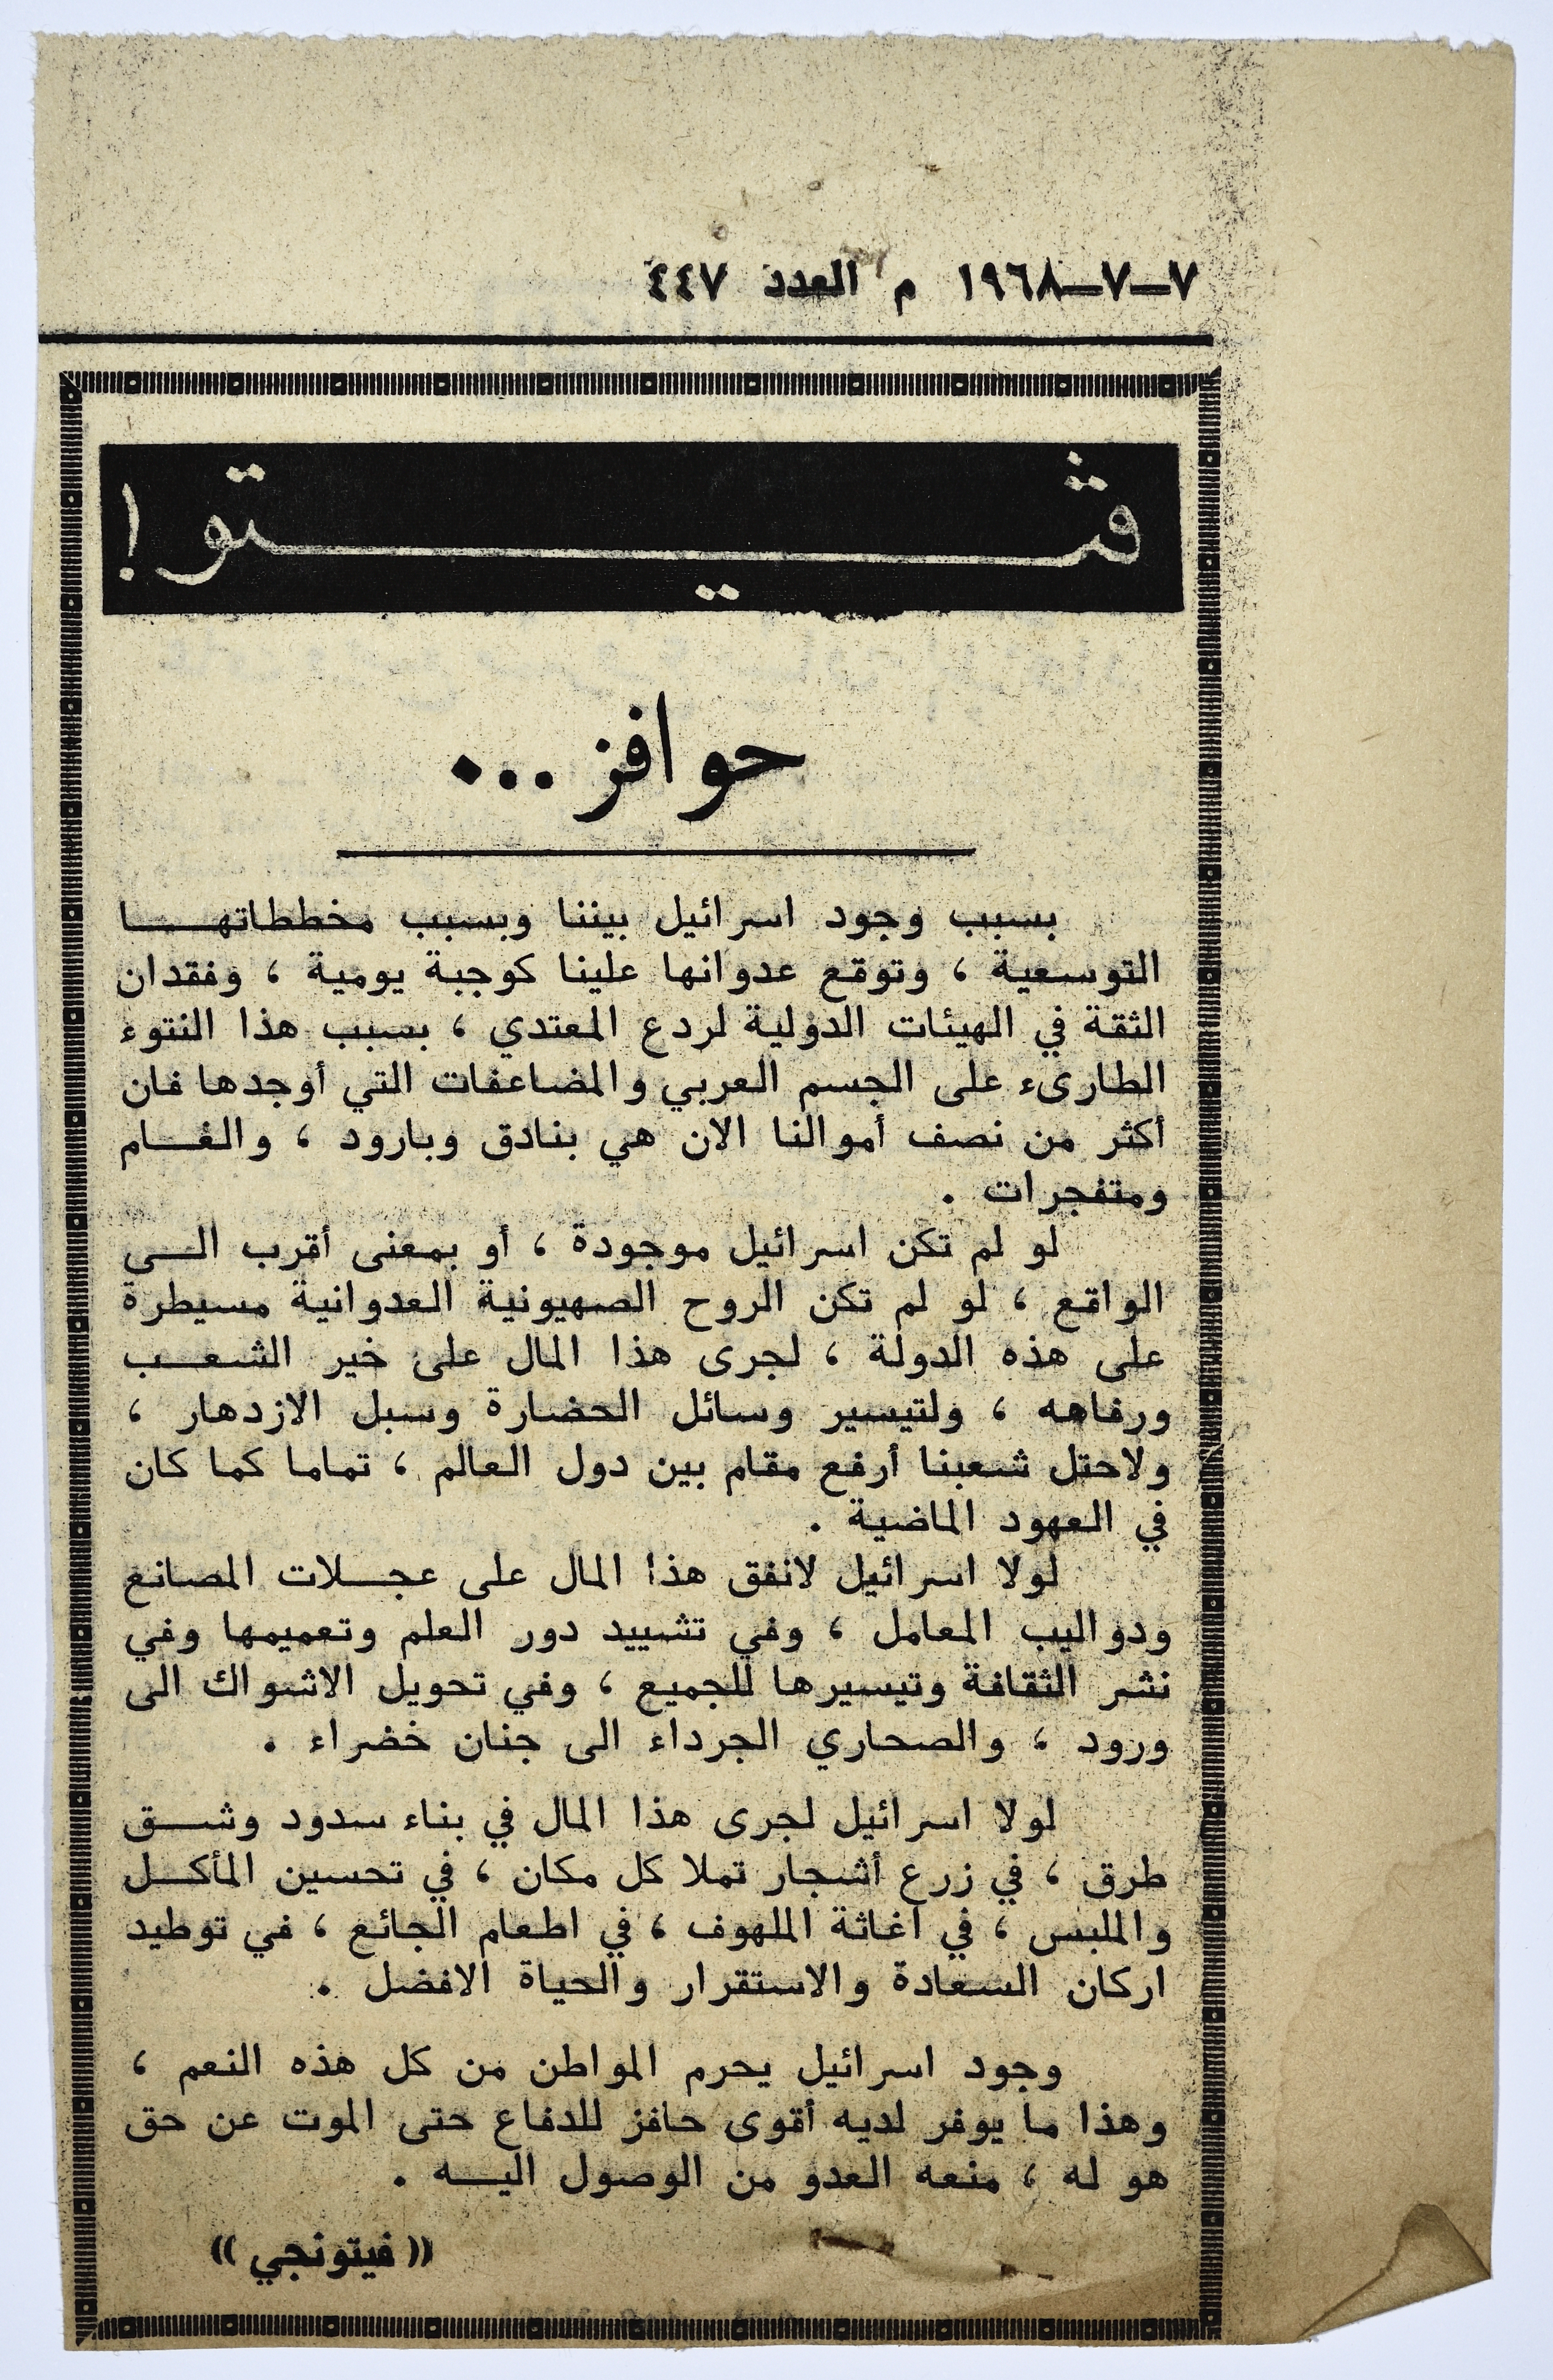 ٧ــ٧ــ١٩٦٨ م العدد ٤٤٧
ڤيتو !
حوافز ...
بسبب وجود اسرائيل بيننا وبسبب مخططاتهـــا
التوسعية ، وتوقع عدوانها علينا كوجبة يومية ، وفقدان
الثقة في الهيئات الدولية لردع المعتدي ، بسبب هذا النتوء
الطارىء على الجسم العربي والمضاعفات التي أوجدها فان
أكثر من نصف أموالنا الان هي بنادق وبارود ، والغــام
ومتفجرات .
لو لم تكن اسرائيل موجودة ، أو بمعنى أقرب الــى
الواقع ، لو لم تكن الروح الصهيونية العدوانية مسيطرة
على هذه الدولة ، لجرى هذا المال على خير الشعــب
ورفاهه ، ولتيسير وسائل الحضارة وسبل الازدهار ،
ولاحتل شعبنا أرفع مقام بين دول العالم ، تماما كما كان
في العهود الماضية .
لولا اسرائيل لانفق هذا المال على عجــلات المصانع
ودواليب المعامل ، وفي تشييد دور العلم وتعميمها وفي
نشر الثقافة وتيسيرها للجميع ، وفي تحويل الاشواك الى
ورود ، والصحاري الجرداء الى جنان خضراء .
لولا اسرائيل لجرى هذا المال في بناء سدود وشــق
طرق ، في زرع أشجار تملا كل مكان ، في تحسين المأكــل
والملبس ، في اغاثة الملهوف ، في اطعام الجائع ، في توطيد
اركان السعادة والاستقرار والحياة الافضل .
وجود اسرائيل يحرم المواطن من كل هذه النعم ،
وهذا ما يوفر لديه أقوى حافز للدفاع حتى الموت عن حق
هو له ، منعه العدو من الوصول اليــه .
(( فيتونجي ))